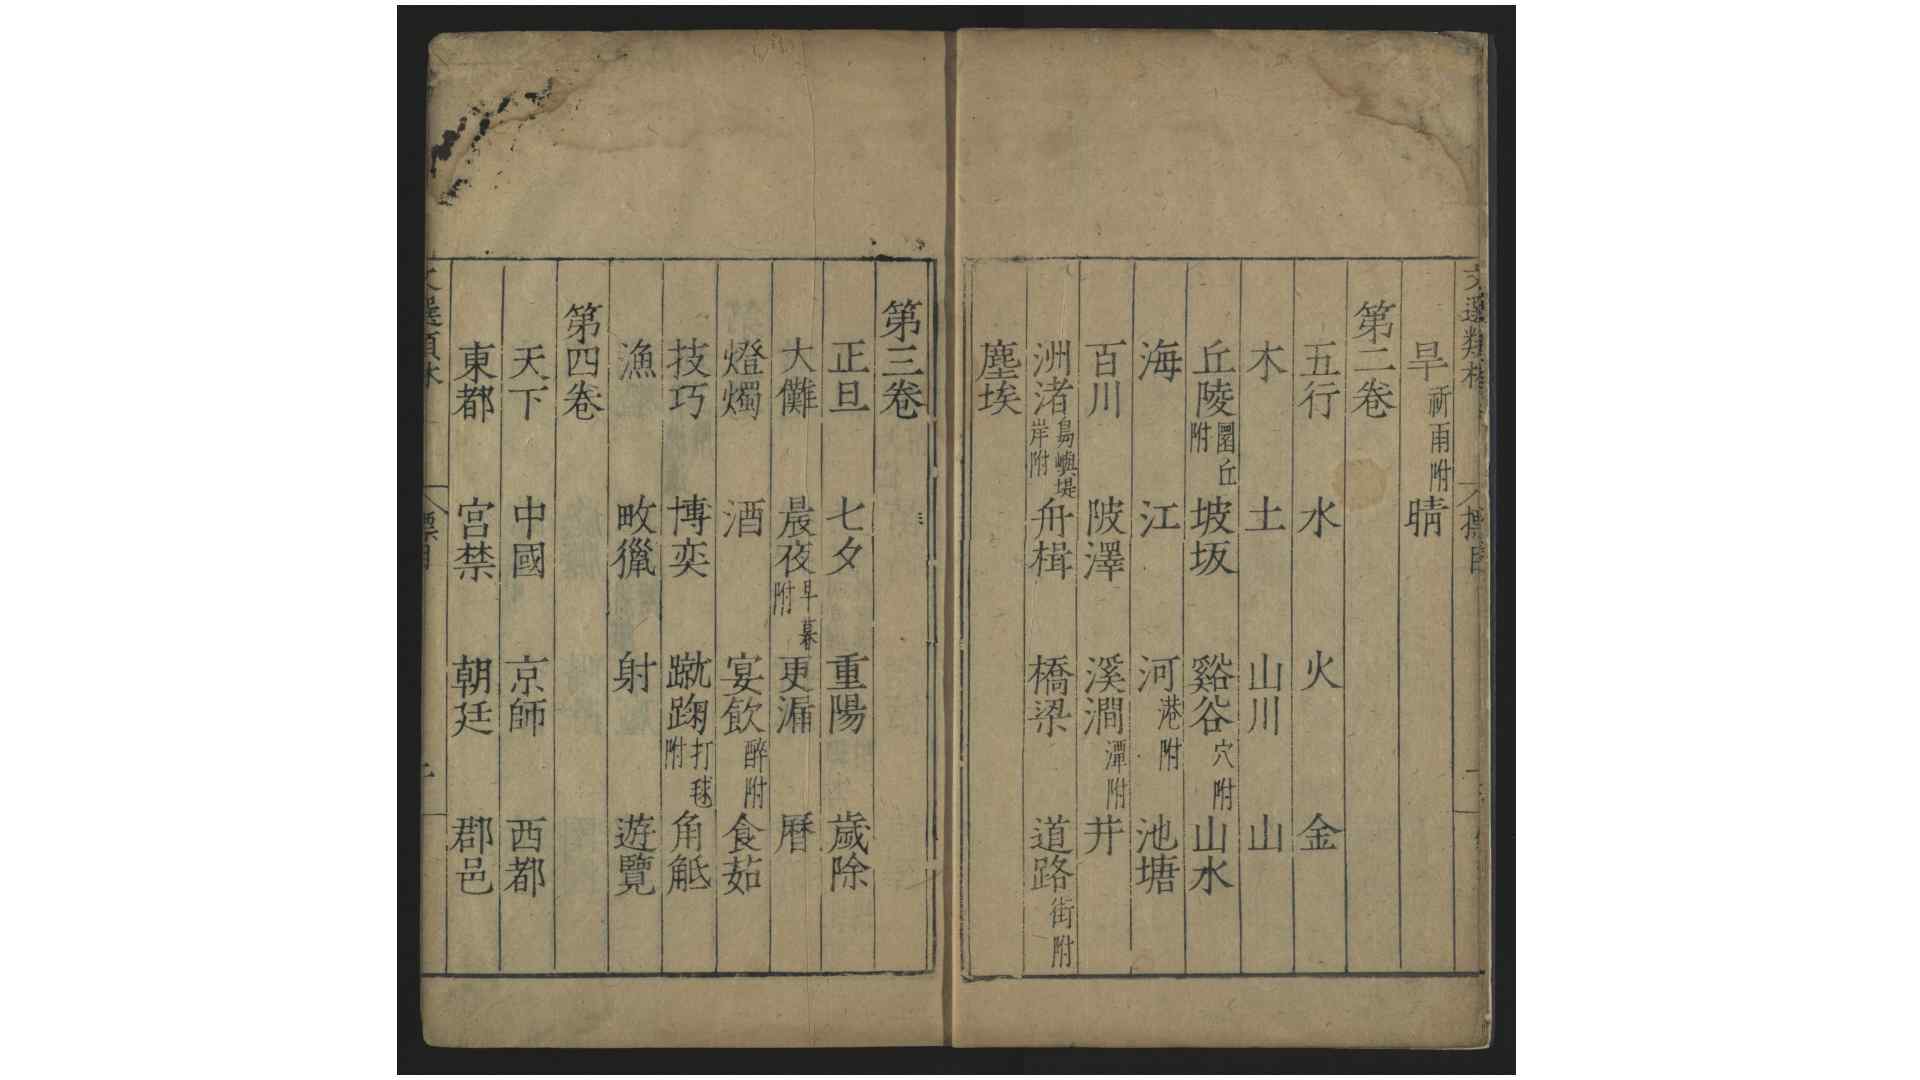 旱祈雨附 晴
第二卷
五行 水 火 金
木 土 山川 山
丘陵圜丘附 坡坂 谿谷穴附 山水
海 江 河港附 池塘
百川 陂澤 溪澗潭附 井
洲渚島嶼堤岸附 舟楫 橋梁 道路街附
塵埃
第三卷
正旦 七夕 重陽 歲除
大儺 晨夜早暮附 更漏 曆
燈燭 酒 宴飲醉附 食茹
技巧 博奕 蹴踘打毬附 角觝
漁 畋獵 射 遊覽
第四卷
天下 中國 京師 西都
東都 宮禁 朝廷 郡邑